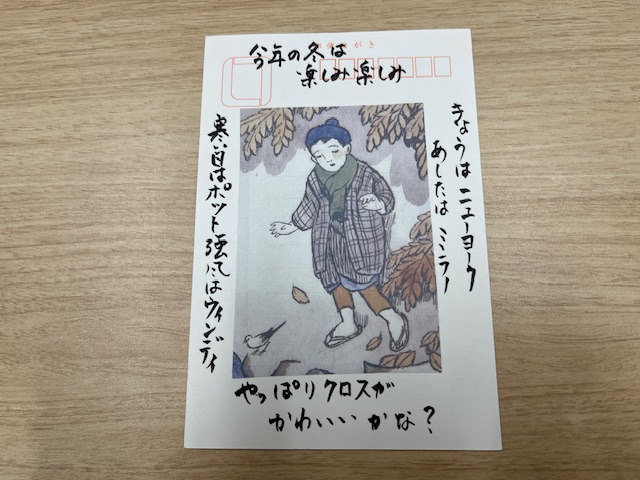 今年の冬は
楽しみ楽しみ
きょうはニューヨーク
あしたはミラノ
寒い日はポット にはウィンディ
やっぱりクロスが
かわいいかな？